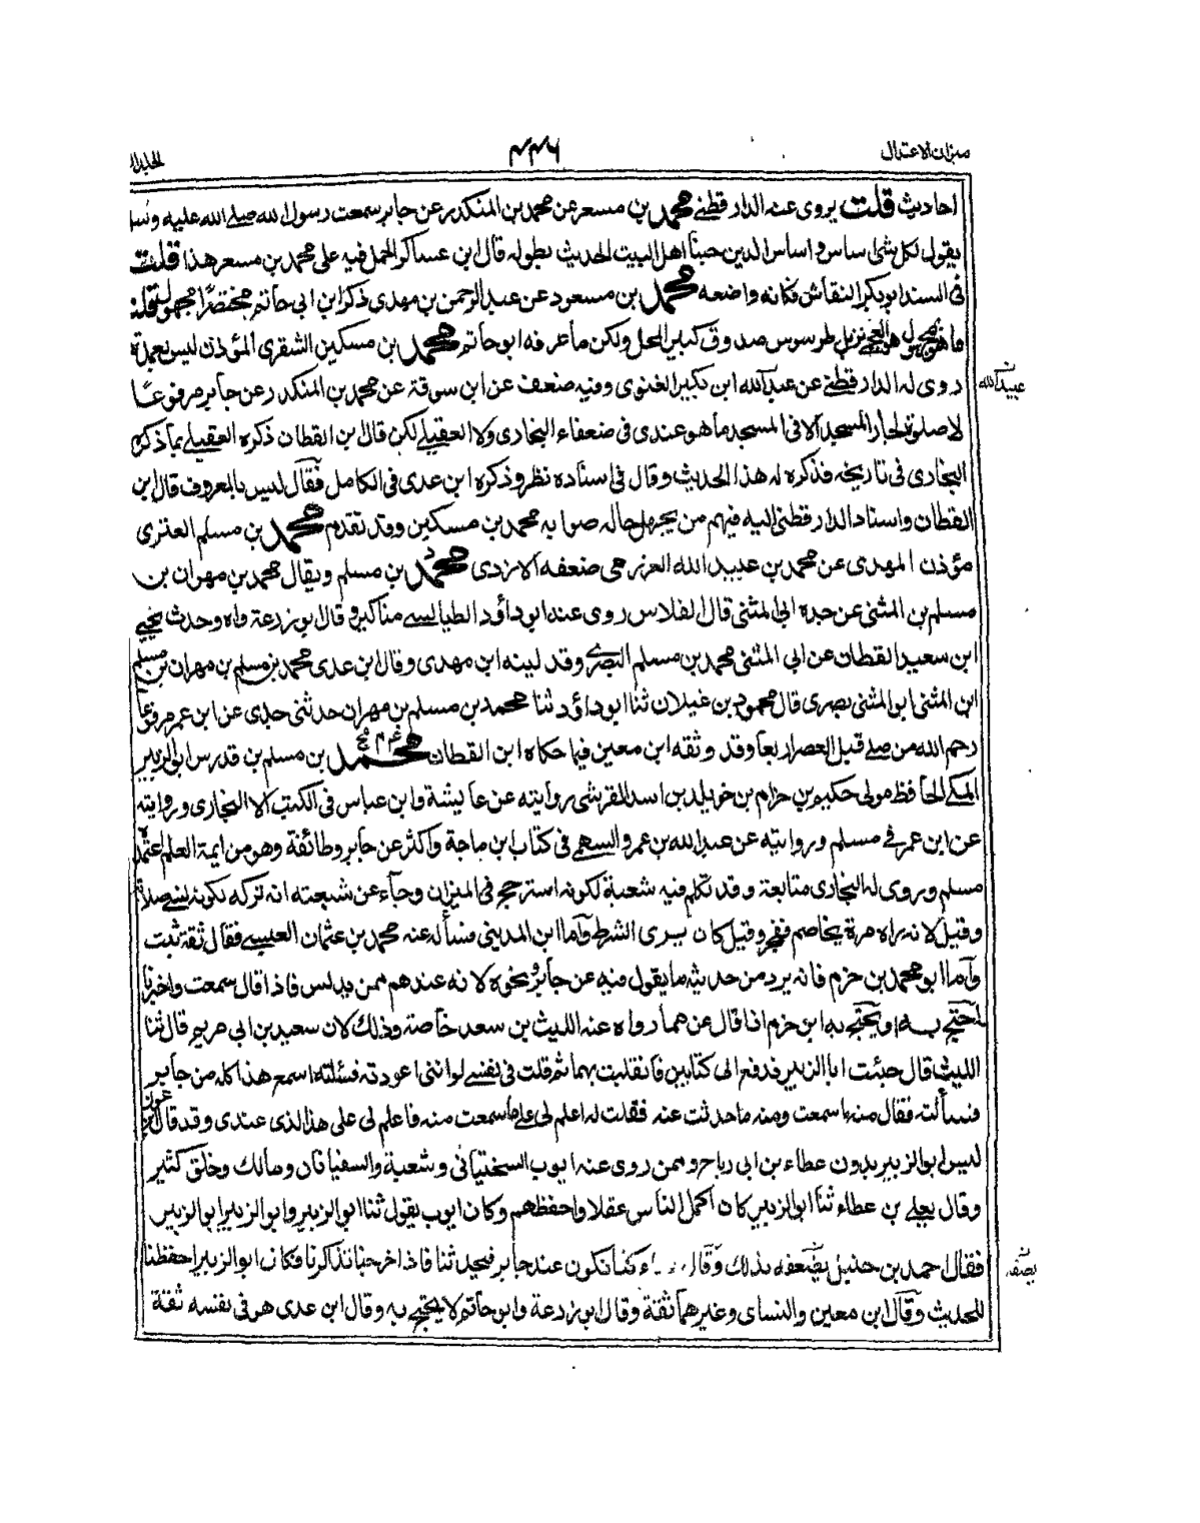 ميزان الاعتدال
۴۴۶
احاديث قلت يروى عنه الدارقطني محمد بن مسعر عن محمد بن المنكدر عن جابر سمعت رسول الله صلى الله عليه
يقول لكل شئ اساس واساس الدين حبنا اهل البيت الحديث بطوله قال ابن عساكر الحمل فيه على محمد بن مسعر هذا قلت
فى السند ابو بكر النقاش فكانه واضعه محمد بن مسعود عن عبد الرحمن بن مهدى ذكر ابن ابى حاتم مختصرا مجهول قلت
ما هو مجهول هو العجمي نزيل طرسوس صدوق كبير المحل ولكن ما عرفه ابو حاتم محمد بن مسكين الشقرى المؤذن ليس بعمدة
روى له الدارقطني عن عبد الله ابن بكير الغنوى وفيه ضعف عن ابن سوقة عن محمد بن المنكدر عن جابر مرفوعا
عبيد الله
لا صلوة لجار المسجد الا فى المسجد ما هو عندى فى ضعفاء البخارى ولا العقيلي لكن قال ابن القطان ذكره العقيلي بما ذكره
البخارى فى تاريخه فذكره له هذا الحديث وقال فى اسناده نظر وذكره ابن عدى فى الكامل فقال ليس بالمعروف قال ابن
القطان واسناد الدارقطني اليه فيهم من يجهل حاله صوابه محمد بن مسكين وقد تقدم محمد بن مسلم العنزى
مؤذن المهدى عن محمد بن عبيد الله العرزمى ضعفه الازدى محمد بن مسلم ويقال محمد بن مهران بن
مسلم بن المثنى عن جده ابى المثنى قال الفلاس روى عند ابو داؤد الطيالسي مناكير وقال ابو زرعة واه وحدث يحيى
ابن سعيد القطان عن ابى المثنى محمد بن مسلم البصرى وقد لينه ابن مهدى وقال ابن عدى محمد بن مسلم بن مهران بن مسلم
ابن المثنى ابو المثنى بصرى قال محمود بن غيلان ثنا ابو داؤد ثنا محمد بن مسلم بن مهران حدثنى جدى عن ابن عمر مرفوعا
رحم الله من صلى قبل العصر اربعا وقد وثقه ابن معين فيما حكاه ابن القطان محمد بن مسلم بن تدرس ابو الزبير
المكى الحافظ مولى حكيم بن حزام بن خويلد بن اسد القرشى روايته عن عائيشة وابن عباس فى الكتب الا البخارى وروايته
عن ابن عمر فى مسلم وروايته عن عبد الله بن عمرو السهمى فى كتاب ابن ماجة واكثر عن جابر وطائفة وهو من ايمة العلم اعتمده
مسلم وروى له البخارى متابعة وقد تكلم فيه شعبة لكونه استرجح فى الميزان وجاء عن شعبته انه تركه لكونه يسئ صلاته
وقيل لانه براه مرة يخاصم ففجر وقيل كان يرى الشرط واما ابن المدينى فسأله عنه محمد بن عثمان العبسى فقال ثقة ثبت
واما ابو محمد بن حزم فانه يرد من حديثه ما يقول فيه عن جابر ونحوه لانه عندهم ممن يدلس فاذا قال سمعت واخبرنا
احتج به ويحتج به ابن حزم اذا قال عن مما رواه عنه الليث بن سعد خاصة وذلك لان سعيد بن ابى مريم قال ثنا
الليث قال جئت ابا الزبير فدفع الى كتابين فانقلبت بهما ثم قلت فى نفسى لو اننى اعودته فسئلته اسمع هذا كله من جابر
فسألته فقال منه ما سمعت ومنه ما حدثت عنه فقلت له اعلم لى على ما سمعت منه فاعلم لى على هذا الذى عندى وقد قال ابن عون
ليس ابو الزبير بدون عطاء بن ابى رباح وممن روى عنه ايوب السختيانى وشعبة والسفيانان ومالك وخلق كثير
وقال يعلى بن عطاء ثنا ابو الزبير كان اكمل الناس عقلا واحفظهم وكان ايوب يقول ثنا ابو الزبير وابو الزبير ابو الزبير
فقال احمد بن حنبل يضعفه بذلك وقال كنا نكون عند جابر فيحدثنا فاذا خرجنا تذاكرنا فكان ابو الزبير احفظنا
للحديث وقال ابن معين والنساى وغيرهما ثقة وقال ابو زرعة وابو حاتم لا يحتج به وقال ابن عدى هو فى نفسه ثقة